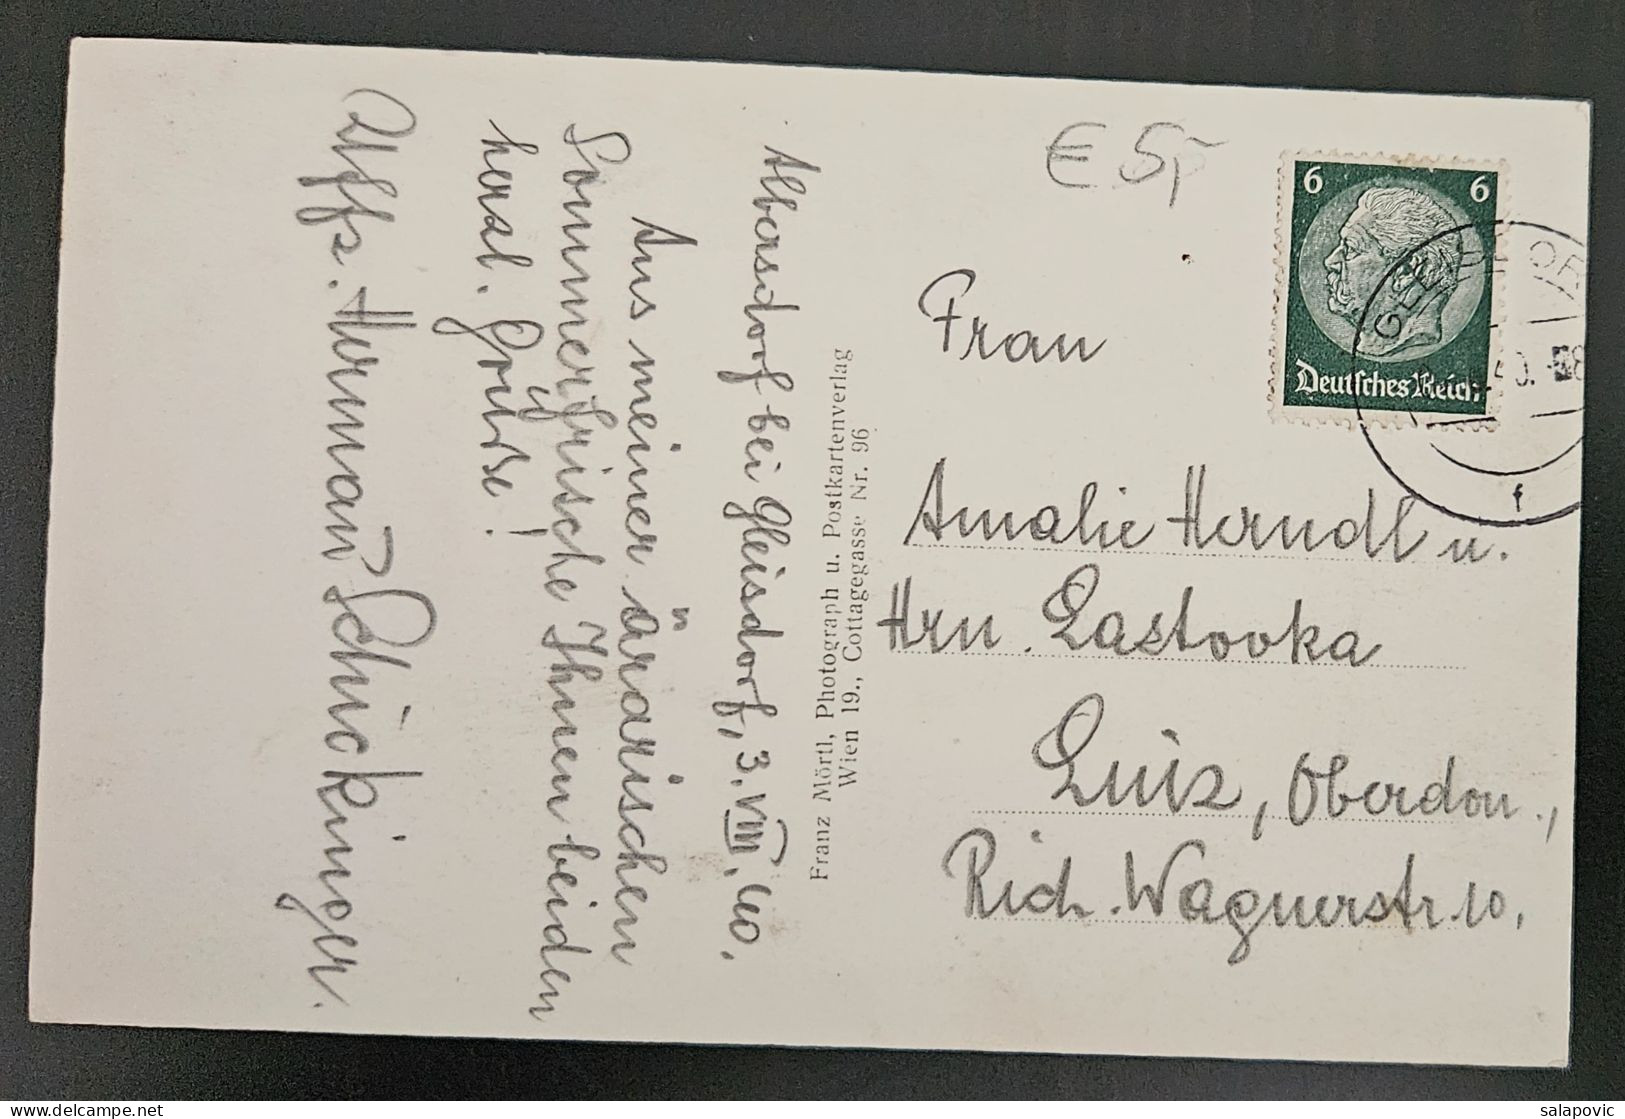 Albersdorf bei Gleisdorf, 3.VIII.40.
Aus meiner ärarischen
Sommerfrische Ihnen beiden
herzl. Grüße!
Uffz. Hermann Schickinger.
Franz Mörtl, Photograph u. Postkartenverlag
Wien 19., Cottagegasse Nr. 96
€ 5,-
6 6
Deutsches Reich
f
Frau
Amalie Herndl u.
Hrn. Lastovka
Linz, Oberdon.,
Rich. Wagnerstr. 10.
delcampe.net
salapovic